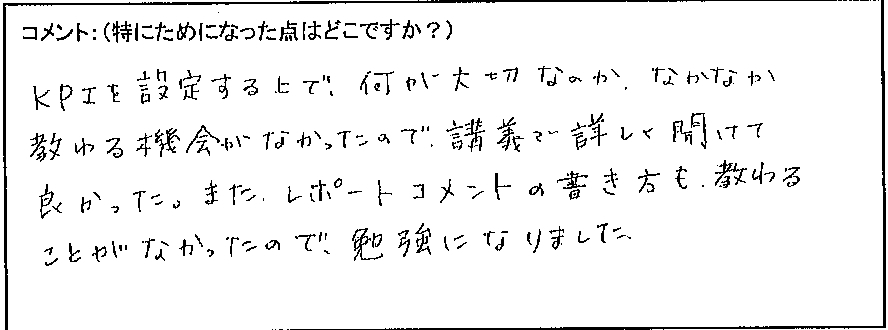 コメント：（特にためになった点はどこですか？）
KPIを設定する上で、何が大切なのか、なかなか
教わる機会がなかったので、講義で詳しく聞けて
良かった。また、レポートコメントの書き方も、教わる
ことがなかったので、勉強になりました。